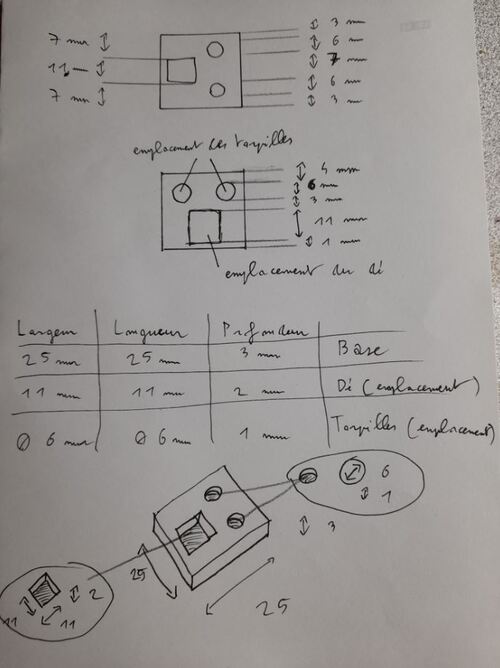 7 mm
11 —
7 mm
3 mm
6 —
7 mm
6 mm
3 mm
emplacement des torpilles
4 mm
6 mm
3 mm
11 mm
1 mm
emplacement du dé
Largeur Longueur Profondeur
25 mm 25 mm 3 mm Base
11 mm 11 mm 2 mm Dé (emplacement)
Ø 6 mm Ø 6 mm 1 mm Torpilles (emplacement)
6
1
3
25
25
2
11
11